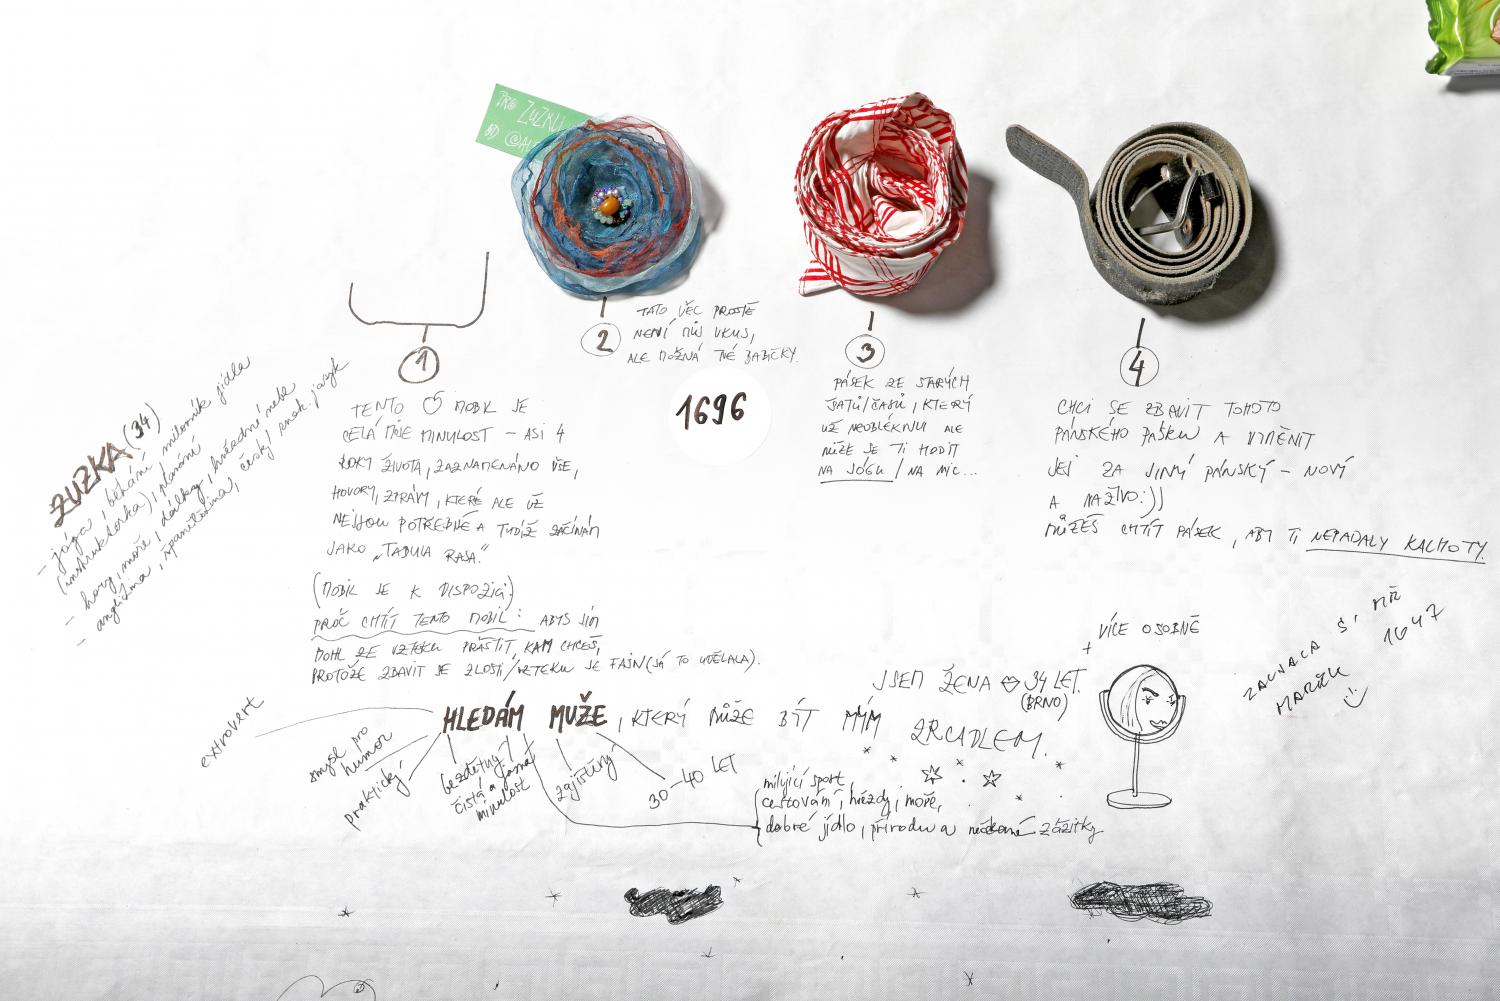 PRO ZUZKU
OD
1
2
TATO VĚC PROSTĚ
NENÍ MŮJ VKUS,
ALE MOŽNÁ TVÉ BABIČKY.
3
4
1696
ZUZKA (34)
- jóga, běhání, milovník jídla
(instruktorka), plavání
- hory, moře, dálky, hvězdné nebe
- angličtina, španělština, český znak. jazyk
TENTO MOBIL JE
CELÁ MOJE MINULOST – ASI 4
ROKY ŽIVOTA, ZAZNAMENÁNO VŠE,
HOVORY, ZPRÁVY, KTERÉ ALE UŽ
NEJSOU POTŘEBNÉ A TUDÍŽ ZAČÍNÁM
JAKO „TABULA RASA."
(MOBIL JE K DISPOZICI)
PROČ CHTÍT TENTO MOBIL: ABYS JÍM
MOHL ZE VZTEKU PRÁŠTIT, KAM CHCEŠ,
PROTOŽE ZBAVIT SE ZLOSTI/VZTEKU JE FAJN (JÁ TO UDĚLALA).
PÁSEK ZE STARÝCH
ŠATŮ/ČASŮ, KTERÝ
UŽ NEOBLÉKNU ALE
MŮŽE SE TI HODIT
NA JÓGU / NA NIC...
CHCI SE ZBAVIT TOHOTO
PÁNSKÉHO PÁSKU A VYMĚNIT
JEJ ZA JINÝ PÁNSKÝ – NOVÝ
A NAŽIVO :))
MŮŽEŠ CHTÍT PÁSEK, ABY TI NEPADALY KALHOTY.
VÍCE OSOBNĚ
+
JSEM ŽENA 34 LET.
(BRNO)
HLEDÁM MUŽE, KTERÝ MŮŽE BÝT MÝM ZRCADLEM.
extrovert
smysl pro
humor
praktický
bezdětný
čistá a jasná
minulost
zajištěný
30–40 LET
milující sport,
cestování, hvězdy, moře,
dobré jídlo, přírodu a zážitky
ZAUJALA S' MĚ
1647